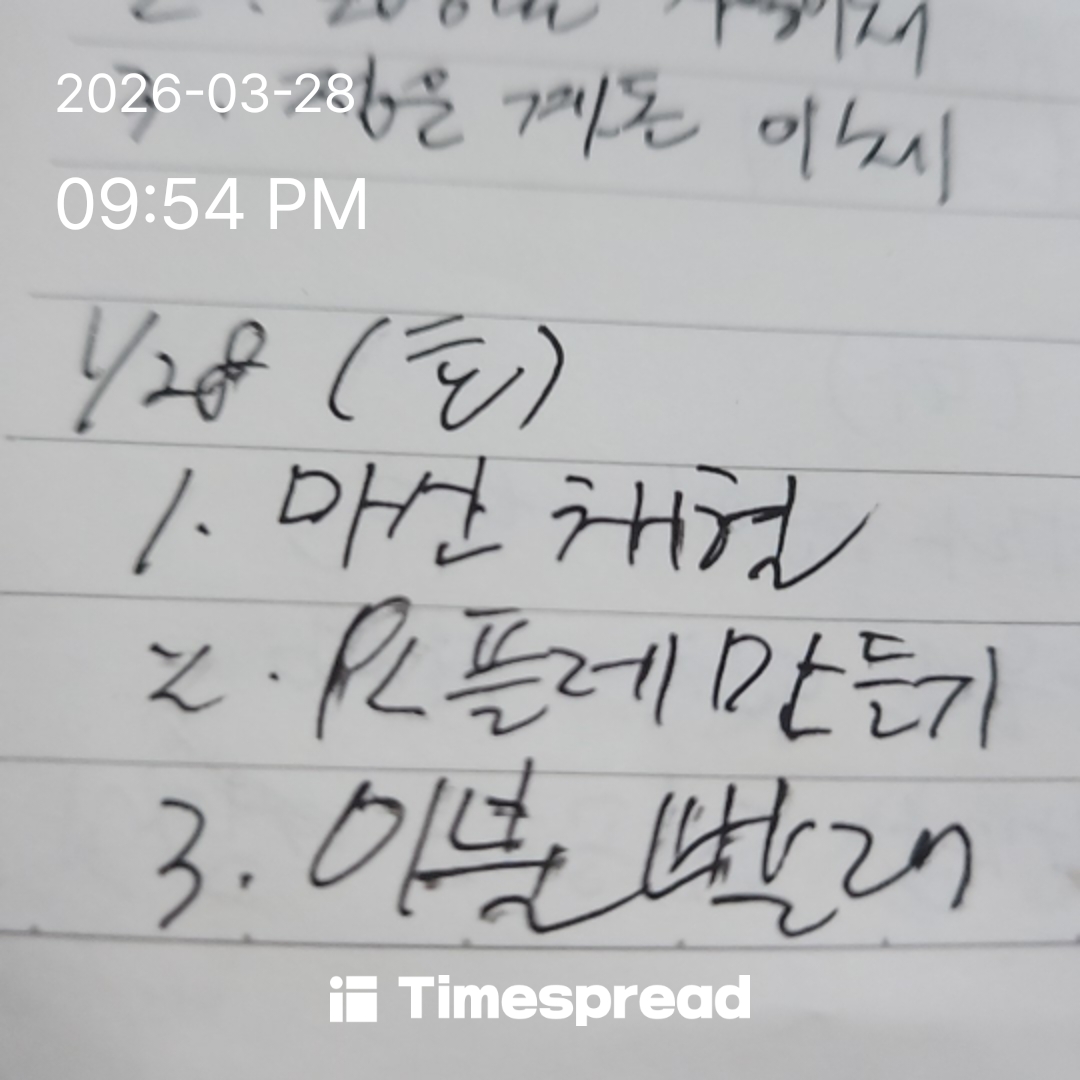 2026-03-28
09:54 PM
1/28 (토)
1. 마산 채혈
2. PC플레 만들기
3. 이불 빨래
Timespread